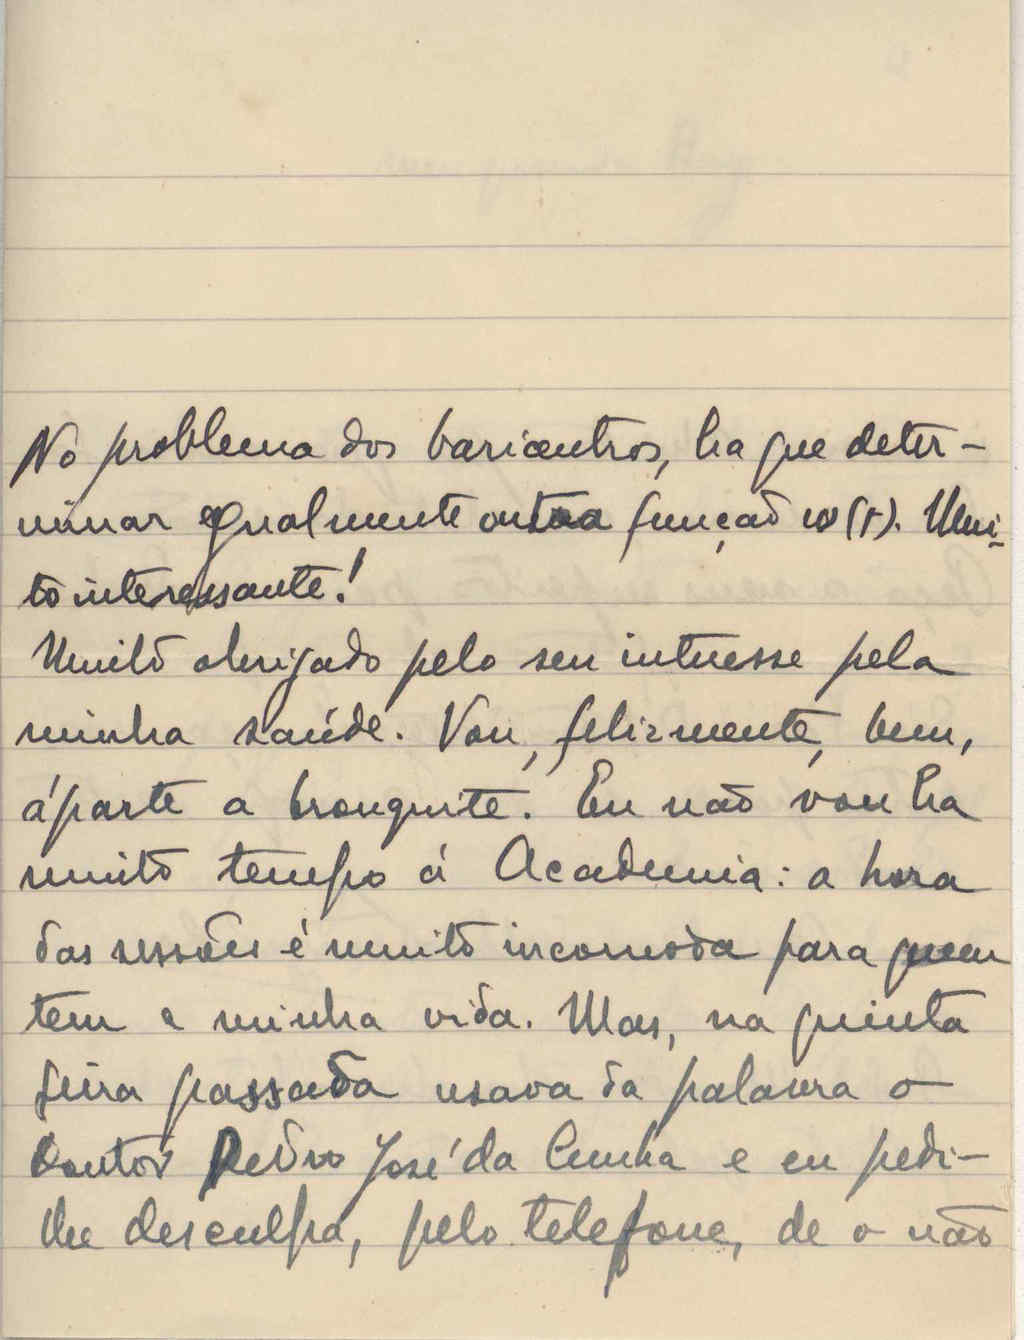 No problema dos baricentros, ha que deter-
minar egualmente outra função w(t). Mui-
to interessante!
Muito obrigado pelo seu interesse pela
minha saúde. Vou, felizmente, bem,
áparte a bronquite. Eu não vou ha
muito tempo á Academia: a hora
das sessões é muito incomoda para quem
tem a minha vida. Mas, na quinta
feira passada usava da palavra o
Doutor Pedro José da Cunha e eu pedi-
lhe desculpa, pelo telefone, de o não